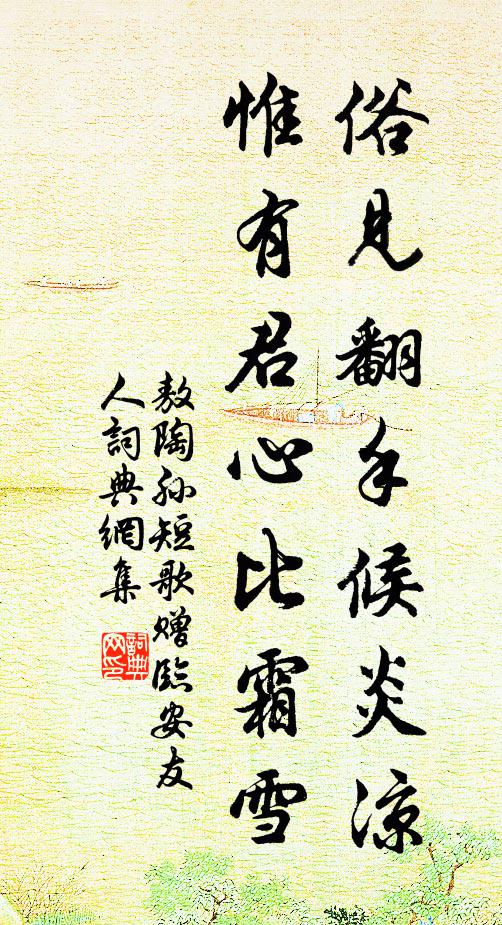 俗見翻手候炎涼
惟有君心比霜雪
敖陶孫短歌贈臨安友
人詞典網集
詞典網印